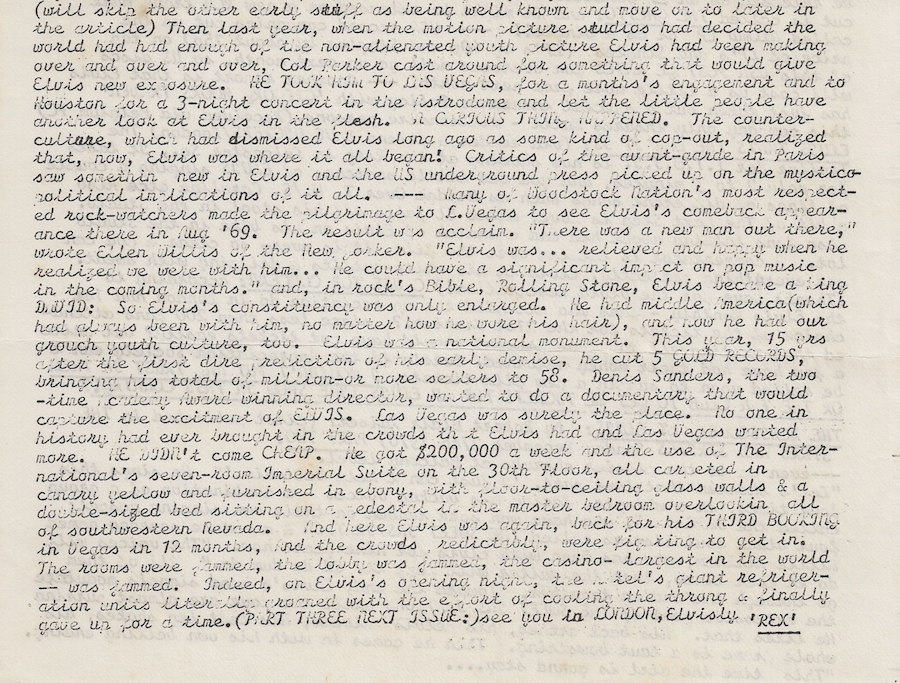 (will skip the other early stuff as being well known and move on to later in
the article) Then last year, when the motion picture studios had decided the
world had had enough of the non-alienated youth picture Elvis had been making
over and over and over, Col Parker cast around for something that would give
Elvis new exposure. HE TOOK HIM TO LAS VEGAS, for a months's engagement and to
Houston for a 3-night concert in the Astrodome and let the little people have
another look at Elvis in the flesh. A CURIOUS THING HAPPENED. The counter-
culture, which had dismissed Elvis long ago as some kind of cop-out, realized
that, now, Elvis was where it all began! Critics of the avant-garde in Paris
saw somethin new in Elvis and the US underground press picked up on the mystico-
political implications of it all. --- Many of Woodstock Nation's most respect-
ed rock-watchers made the pilgrimage to L.Vegas to see Elvis's comeback appear-
ance there in Aug '69. The result was acclaim. "There was a new man out there,"
wrote Ellen Willis of the New Yorker. "Elvis was... relieved and happy when he
realized we were with him... He could have a significant impact on pop music
in the coming months." and, in rock's Bible, Rolling Stone, Elvis became a King
DAVID: So Elvis's constituency was only enlarged. He had middle America(which
had always been with him, no matter how he wore his hair), and now he had our
grouch youth culture, too. Elvis was a national monument. This year, 15 yrs
after the first dire prediction of his early demise, he cut 5 GOLD RECORDS,
bringing his total of million-or more sellers to 58. Denis Sanders, the two
-time Academy Award winning director, wanted to do a documentary that would
capture the excitment of ELVIS. Las Vegas was surely the place. No one in
history had ever brought in the crowds that Elvis had and Las Vegas wanted
more. HE DIDN't come CHEAP. He got $200,000 a week and the use of The Inter-
national's seven-room Imperial Suite on the 30th Floor, all carpeted in
canary yellow and furnished in ebony, with floor-to-ceiling glass walls & a
double-sized bed sitting on a pedestal in the master bedroom overlookin all
of southwestern Nevada. And here Elvis was again, back for his THIRD BOOKING
in Vegas in 12 months, And the crowds predictably, were fighting to get in.
The rooms were jammed, the lobby was jammed, the casino- largest in the world
-- was jammed. Indeed, on Elvis's opening night, the hotel's giant refriger-
ation units literally groaned with the effort of cooling the throng & finally
gave up for a time.(PART THREE NEXT ISSUE:)see you in LONDON,Elvisly 'REX'